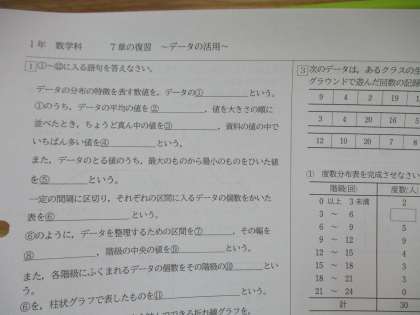 1年 数学科 7章の復習 ~データの活用~
1 ①~⑫に入る語句を答えなさい。
データの分布の特徴を表す数値を、データの① という。
①のうち、データの平均の値を② 、値を大きさの順に
並べたとき、ちょうど真ん中の値を③ 、資料の値の中で
いちばん多い値を④ という。
また、データのとる値のうち、最大のものから最小のものをひいた値
を⑤ という。
一定の間隔に区切り、それぞれの区間に入るデータの個数をかいた
表を⑥ という。
⑥のように、データを整理するための区間を⑦ 、その幅を
⑧ 、階級の中央の値を⑨ という。
また、各階級にふくまれるデータの個数をその階級の⑩ とい
う。
⑥を、柱状グラフで表したものを⑪ という。
3 次のデータは、あるクラスの生
グラウンドで遊んだ回数の記録
9 4 2 19 1
3 4 20 16 5
12 10 20 7 8
① 度数分布表を完成させなさい
階級(回) 度数(人)
0 以上 3 未満 2
3 ~ 6
6 ~ 9 5
9 ~ 12 9
12 ~ 15 4
15 ~ 18 3
18 ~ 21 3
21 ~ 24 0
計 30